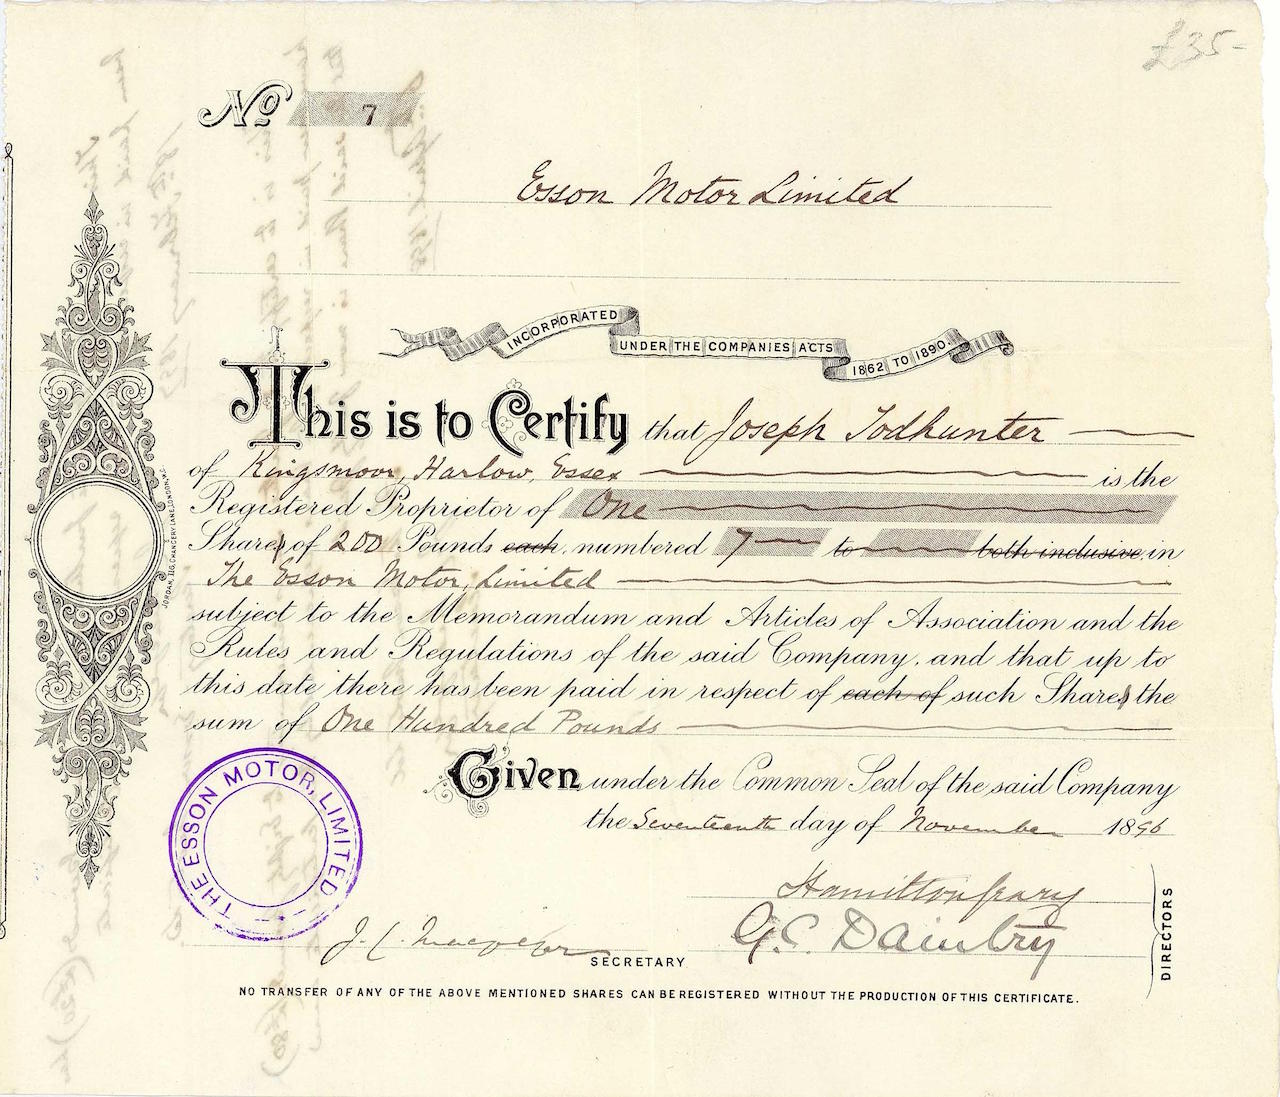 £35-
No 7
Esson Motor Limited
INCORPORATED UNDER THE COMPANIES ACTS 1862 TO 1890.
This is to Certify that Joseph Todhunter
of Kingsmoor, Harlow, Essex is the
Registered Proprietor of One
Shares of 200 Pounds each, numbered 7 to both inclusive, in
The Esson Motor, Limited
subject to the Memorandum and Articles of Association and the
Rules and Regulations of the said Company, and that up to
this date there has been paid in respect of each of such Shares the
sum of One Hundred Pounds
Given under the Common Seal of the said Company
the Seventeenth day of November 1896
THE ESSON MOTOR, LIMITED
Hamilton Geary
G.C. Daintry
DIRECTORS
J. C. Macgregor
SECRETARY
NO TRANSFER OF ANY OF THE ABOVE MENTIONED SHARES CAN BE REGISTERED WITHOUT THE PRODUCTION OF THIS CERTIFICATE.
JORDAN, 116, CHANCERY LANE, LONDON, W.C.